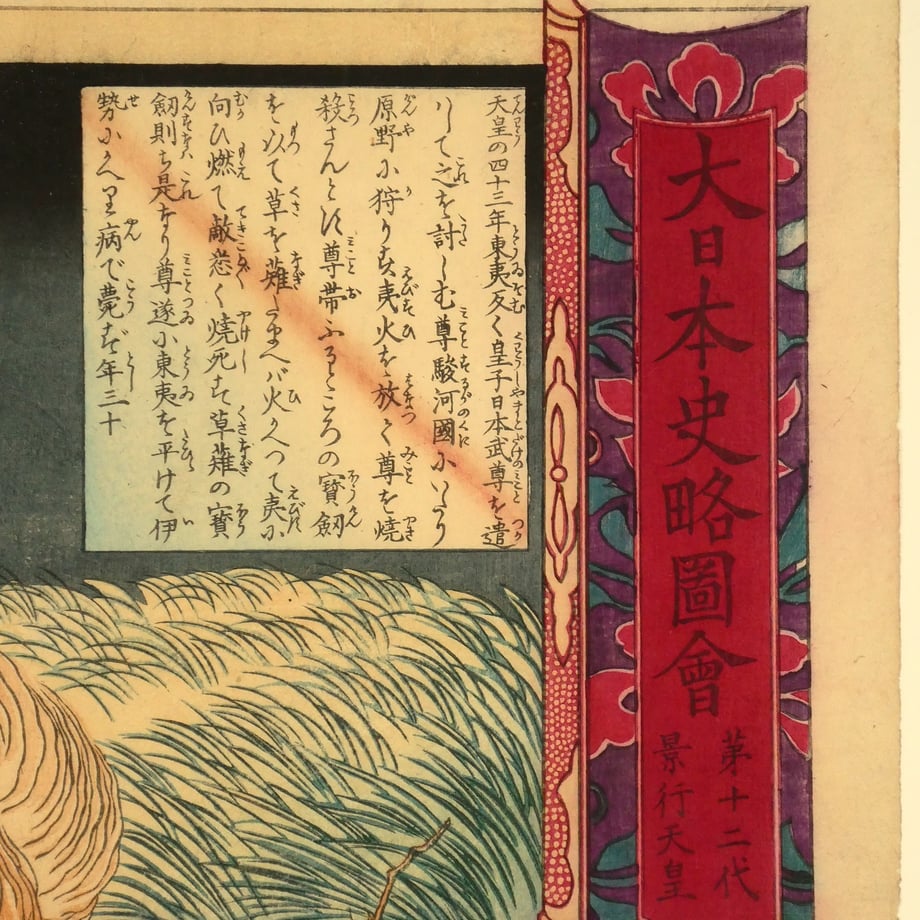 大日本史略圖會
第十二代
景行天皇
天皇の四十三年東夷反く皇子日本武尊を遣
して之を討しむ尊駿河國小いたり
原野小狩りす夷火を放て尊を焼
殺さんとす尊帯ふるところの寳劔
を以て草を薙たまへバ火かへつて夷小
向ひ燃て敵悉く焼死す草薙の寳
劔則ち是なり尊遂小東夷を平けて伊
勢小かへり病で薨ず年三十